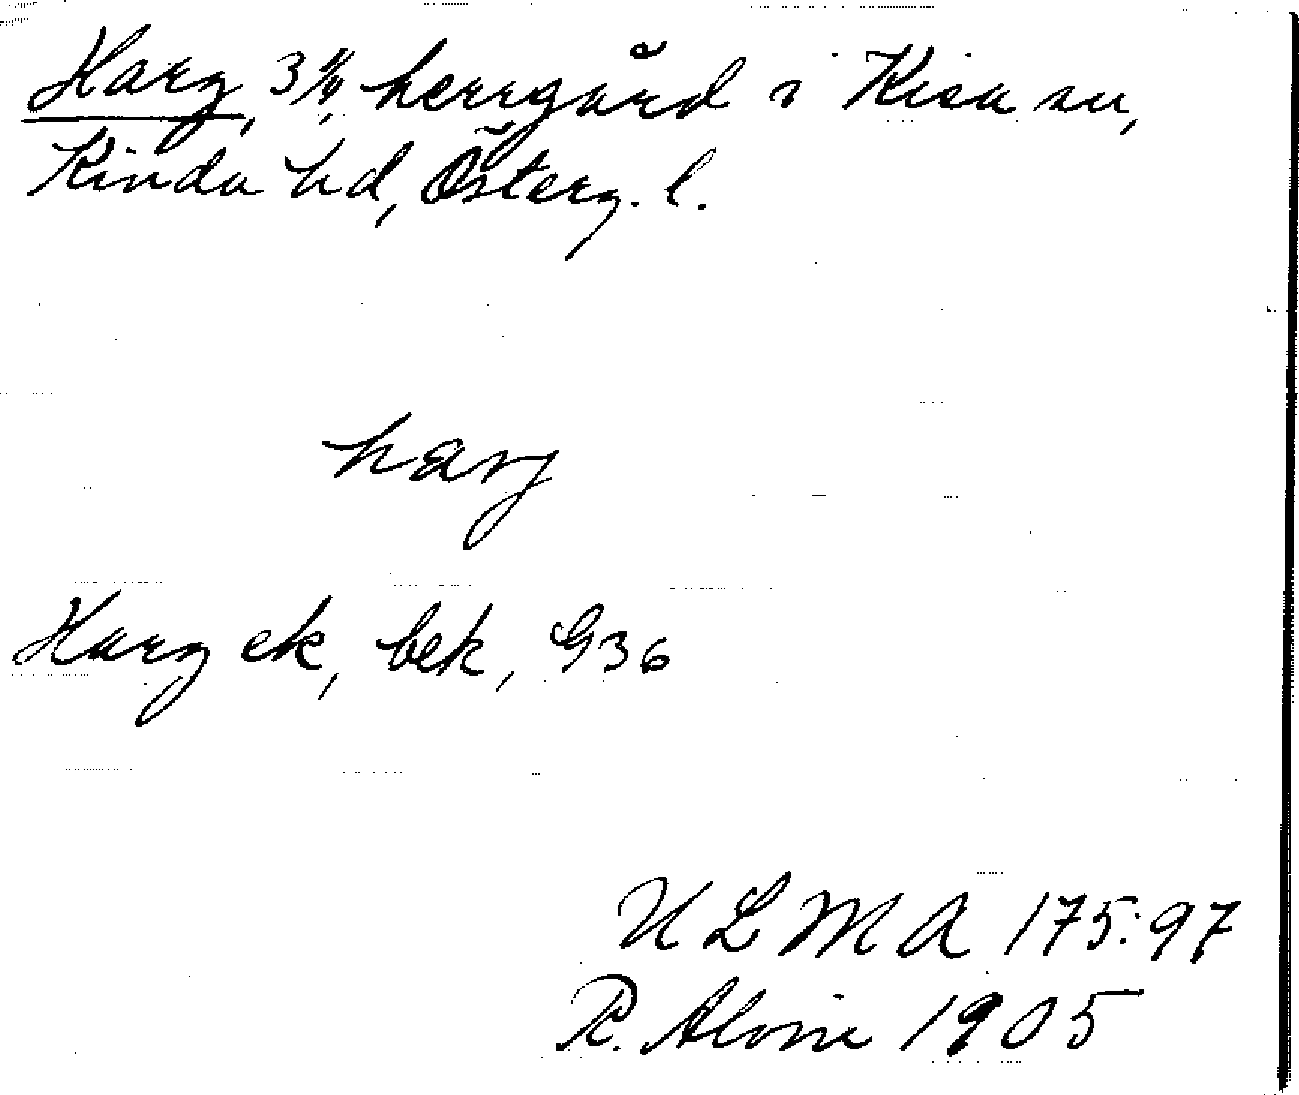 Harg, 3 herrgård i Kisa sn,
Kinda hd, Österg. l.
harj
Harg ek, bek, G36
ULMA 175:97
R. Alvin 1905